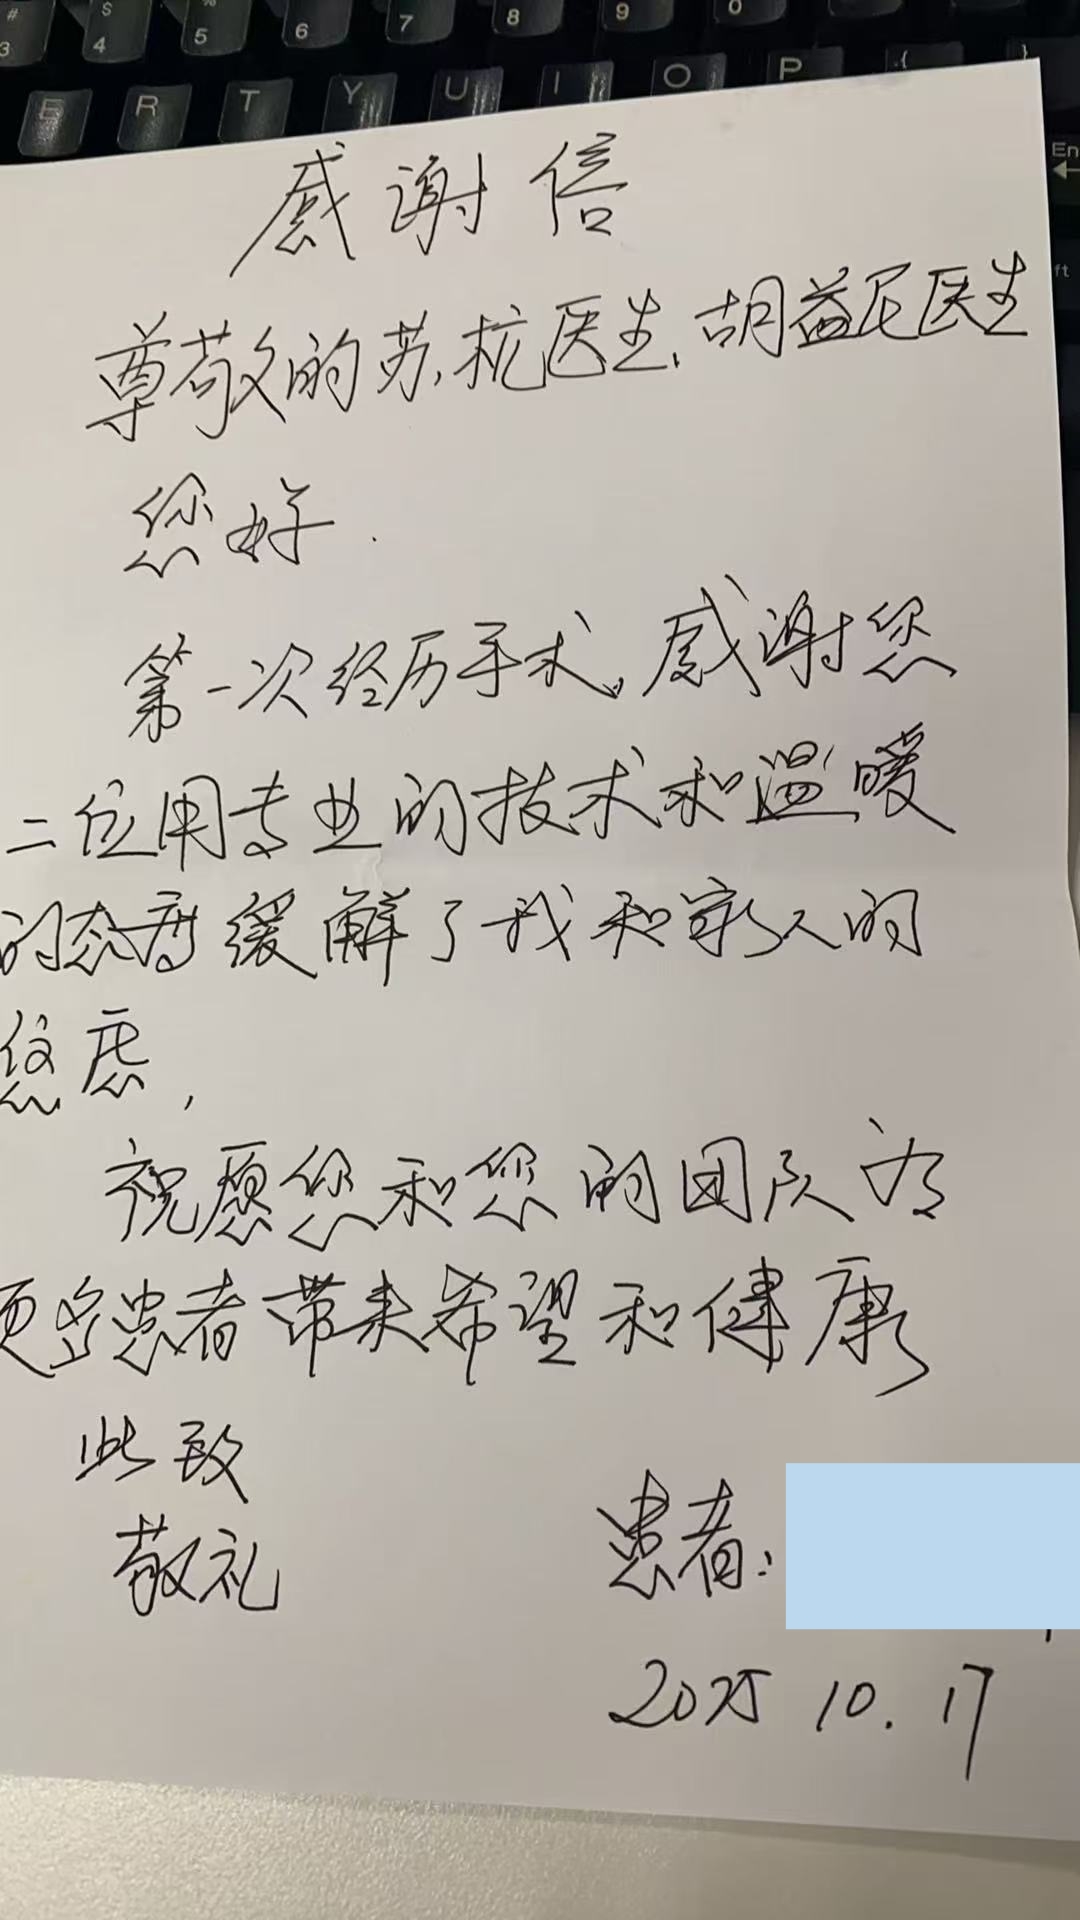 # $ %
3 4 5 6 7 8 9 0
E R T Y U I O P { }
En
ft
感谢信
尊敬的苏杭医生、胡益尼医生
您好.
第一次经历手术,感谢您
二位用专业的技术和温暖
的态度缓解了我和家人的
虑,
祝愿您和您的团队为
更多患者带来希望和健康
此致
敬礼
患者:
2025 10.17